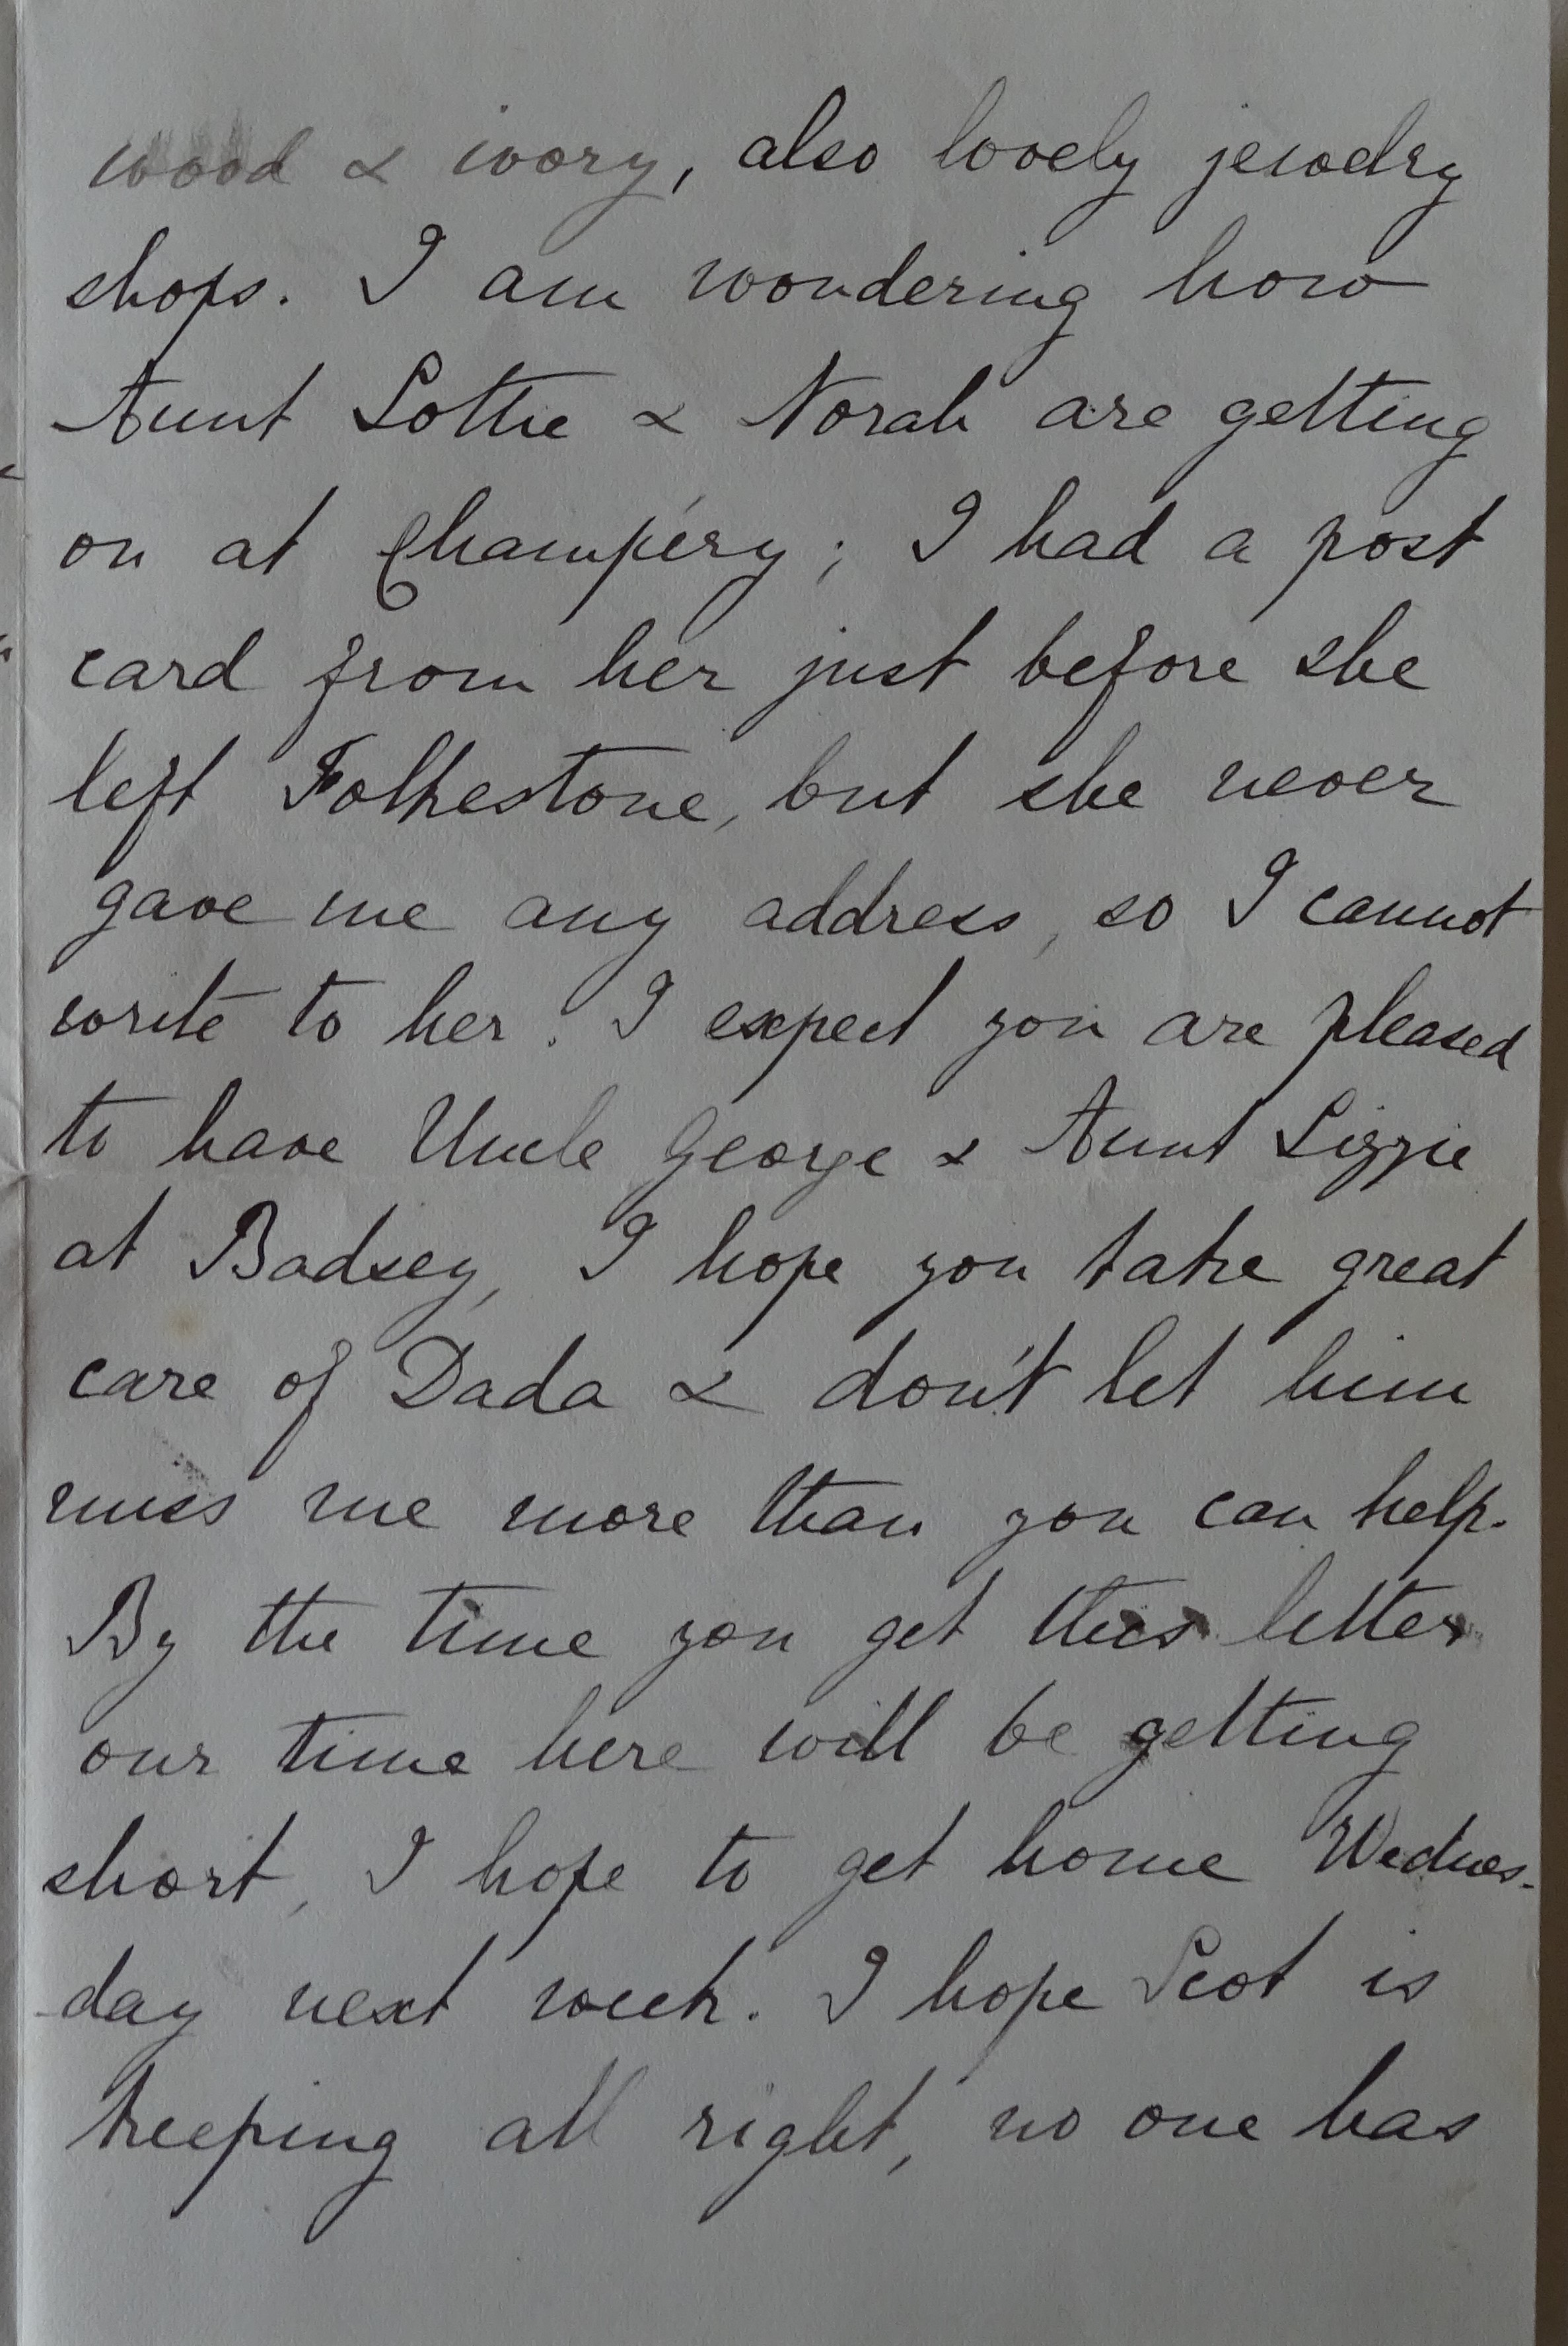 wood & ivory, also lovely jewelry
shops. I am wondering how
Aunt Lottie & Norah are getting
on at Champéry; I had a post
card from her just before she
left Folkestone, but she never
gave me any address, so I cannot
write to her. I expect you are pleased
to have Uncle George & Aunt Lizzie
at Badsey, I hope you take great
care of Dada & don't let him
miss me more than you can help.
By the time you get this letter
our time here will be getting
short, I hope to get home Wednes-
-day next week. I hope Scot is
keeping all right, no one has